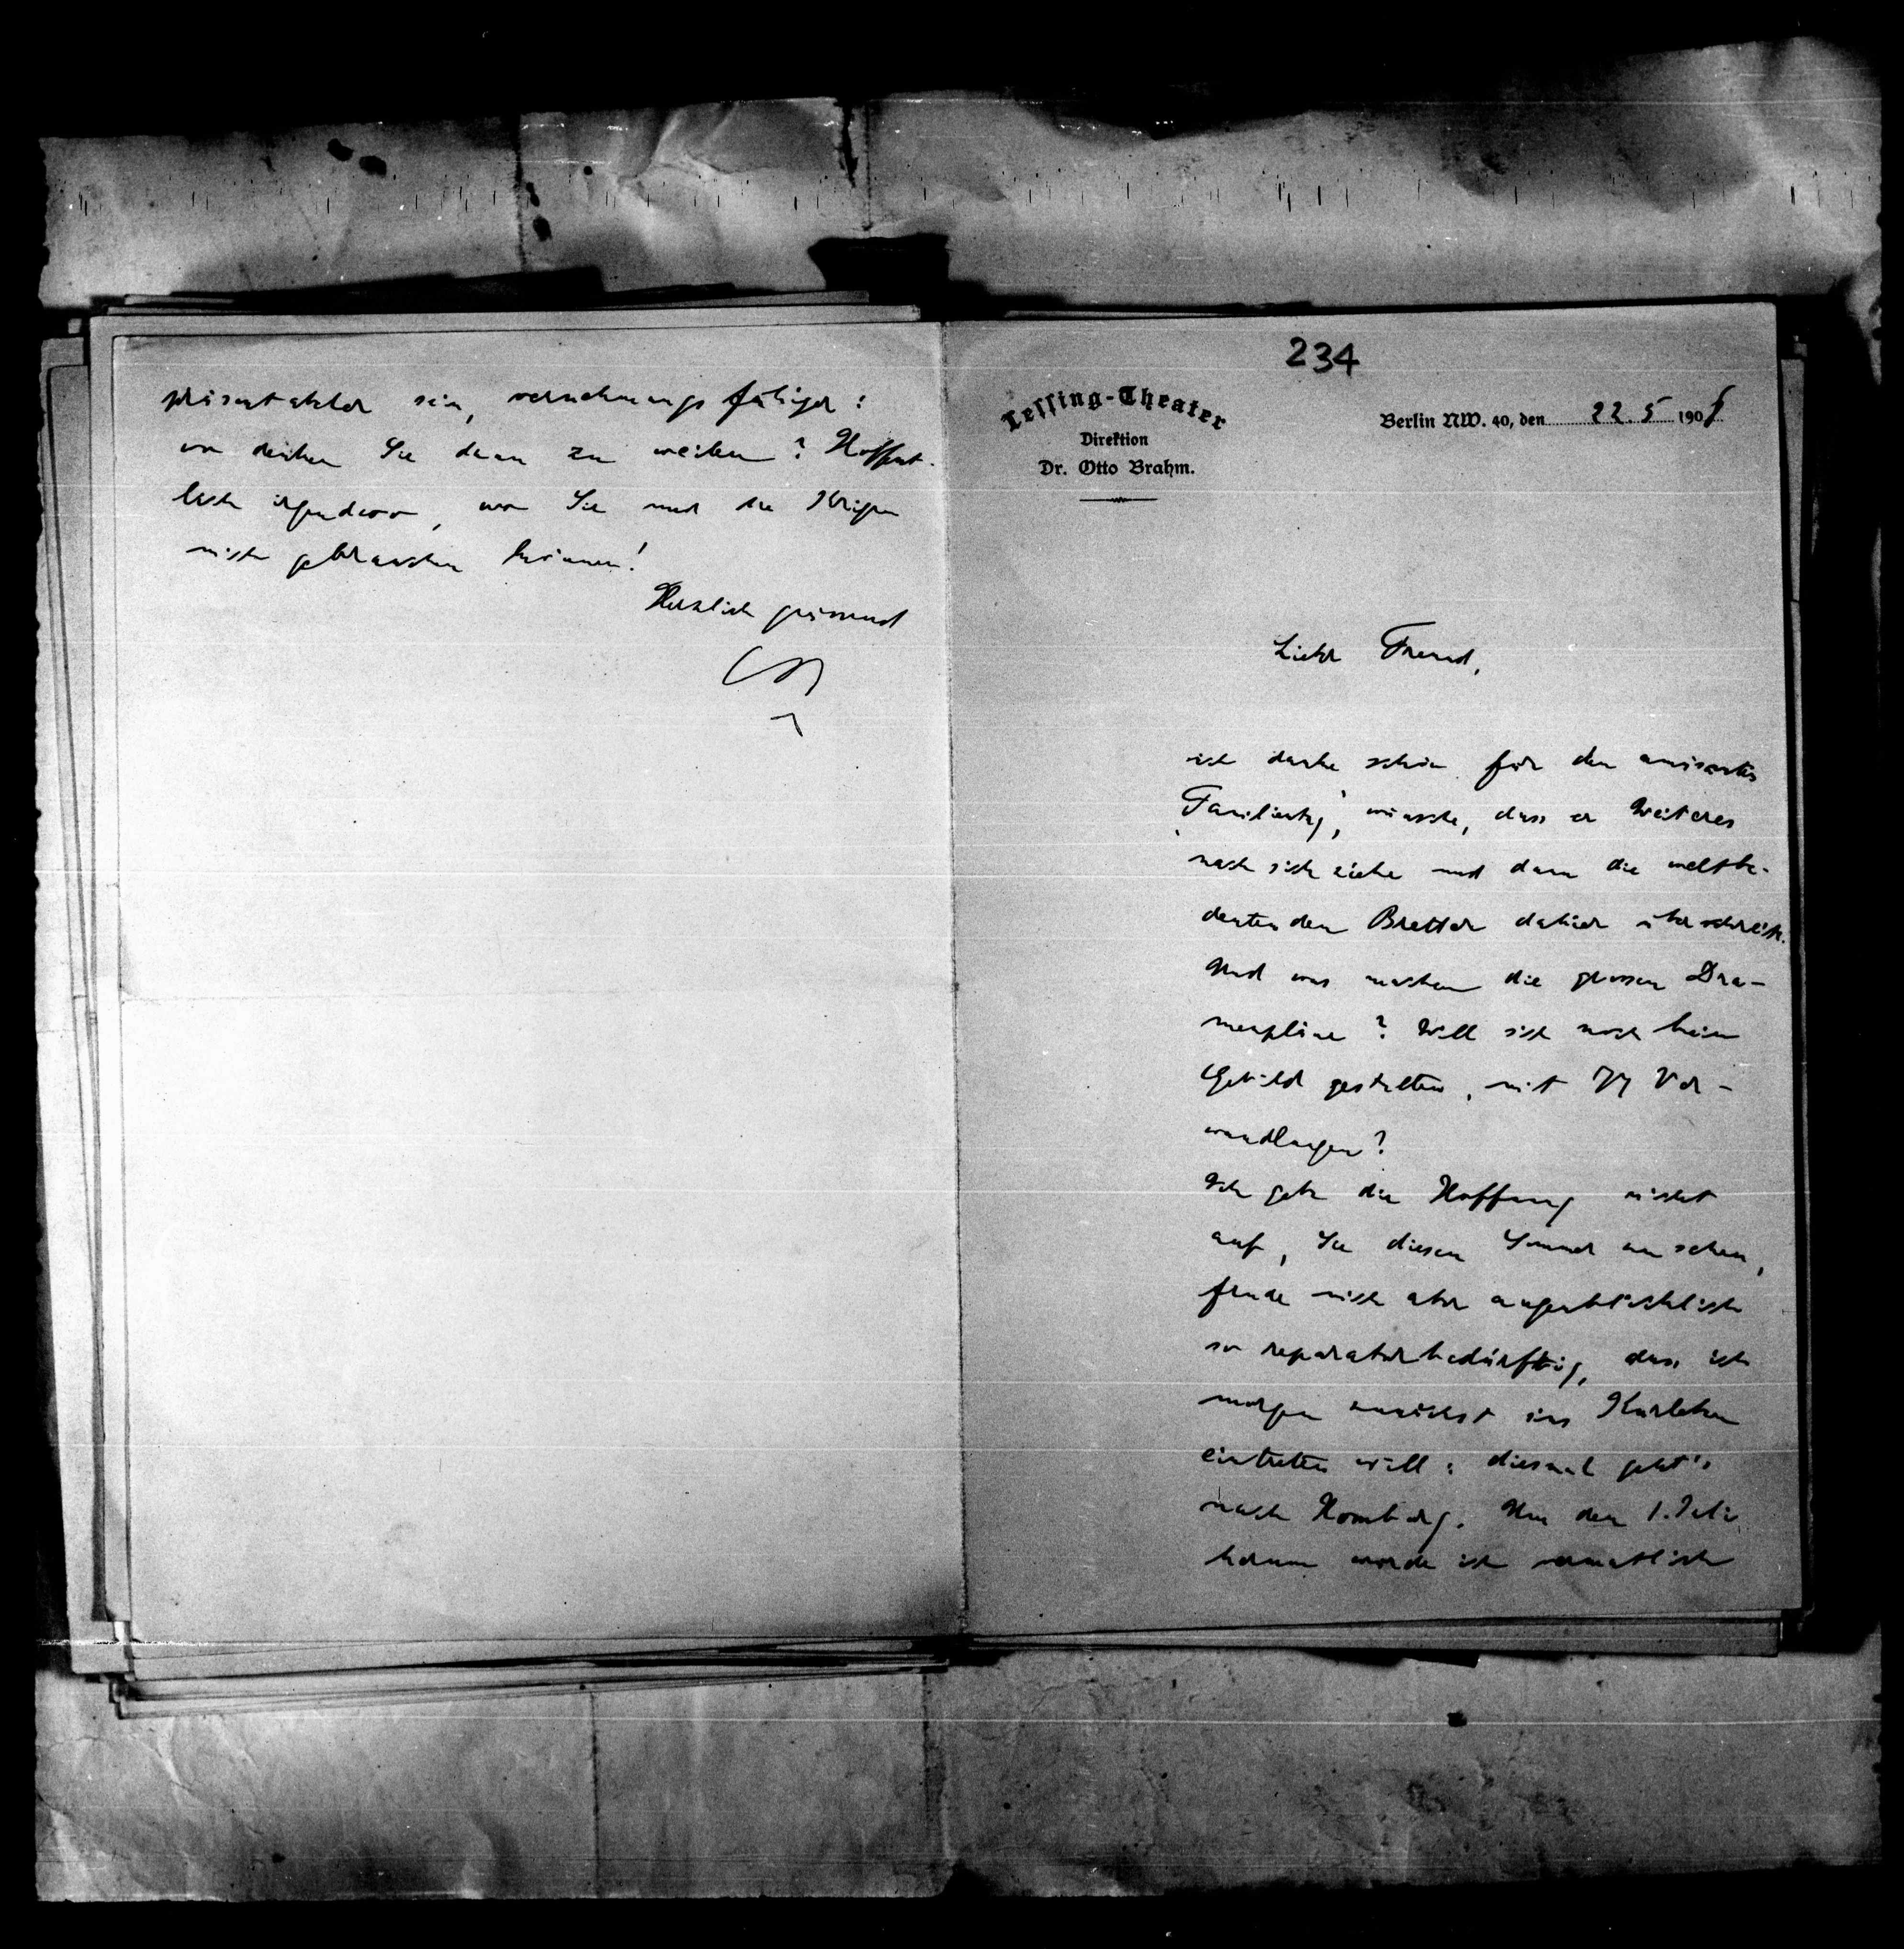 234
Lessing-Theater
Direktion
Dr. Otto Brahm.
Berlin NW. 40, den 22.5 1908
Lieber Freund,
ich danke schön für den amüsanten
"Familientag", wünsche, dass er Weiteres
nach sich ziehe und dann die weltbe-
deutenden Bretter dahier überschreite.
Und was machen die grossen Dra-
menpläne? Will sich noch kein
Gebild gestalten, mit 77 Ver-
wandlungen?
Ich gebe die Hoffnung nicht
auf, Sie diesen Sommer zu sehen,
finde mich aber augenblicklich
so reparaturbedürftig, dass ich
morgen zunächst ins Kurleben
eintreten will: diesmal geht's
nach Homburg. Um den 1. Juli
herum werde ich vermutlich
präsentabler sein, vernehmungsfähiger:
wo denken Sie dann zu weilen? Hoffent-
lich irgendwo, wo Sie und die Ihrigen
mich gebrauchen können!
Herzlich grüssend